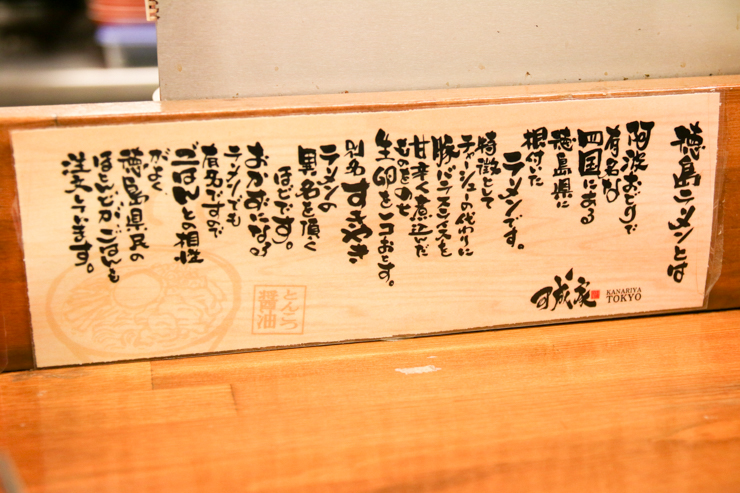 徳島ラーメンとは
阿波おどりで
有名な
四国にある
徳島県に
根付いた
ラーメンです。
特徴として
チャーシューの代わりに
豚バラスライスを
甘辛く煮込んだ
ものをのせ
生卵を一コおとす。
別名すきやき
ラーメンの
異名を頂く
ほどです。
おかずになる
ラーメンでも
有名ですので
ごはんとの相性
がよく
徳島県民の
ほとんどがごはんも
注文していきます。
可成家
KANARIYA
TOKYO
とんこつ
醤油